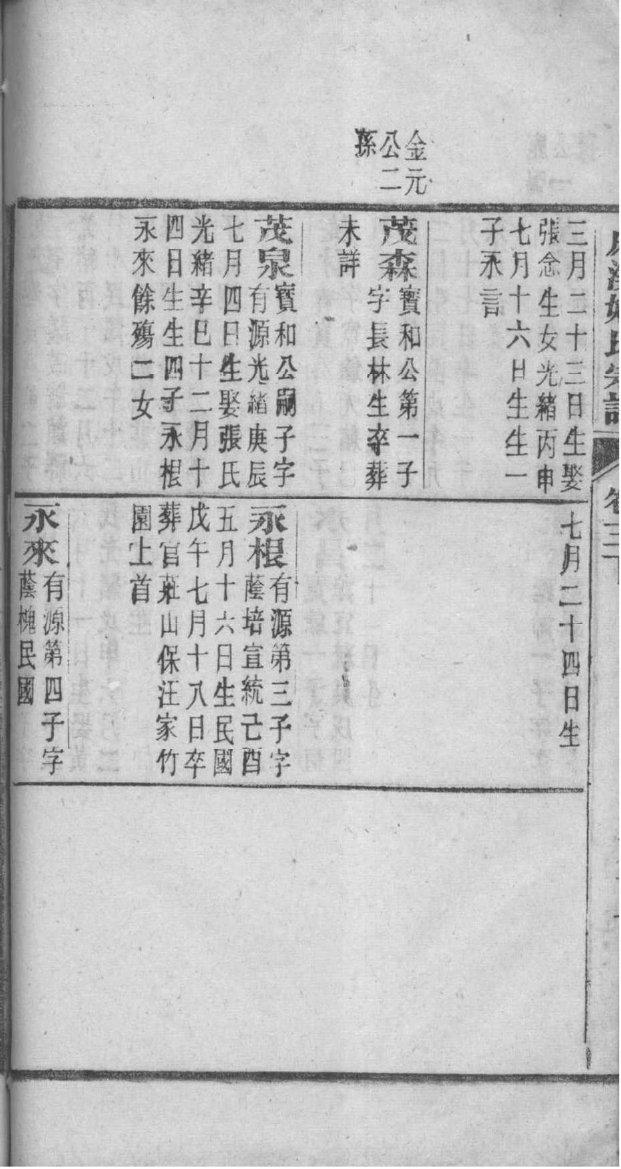 氏宗譜
卷三
金元
公二
孫
三月二十三日生娶
張念生女光緒丙申
七月十六日生生一
子永言
茂森寶和公第一子
字長林生卒葬
未詳
茂泉寶和公嗣子字
有源光緒庚辰
七月四日生娶張氏
光緒辛巳十二月十
四日生生四子永根
永來餘殤二女
七月二十四日生
永根有源第三子字
蔭培宣統己酉
五月十六日生民國
戊午七月十八日卒
葬官莊山保汪家竹
園上首
永來有源第四子字
蔭槐民國